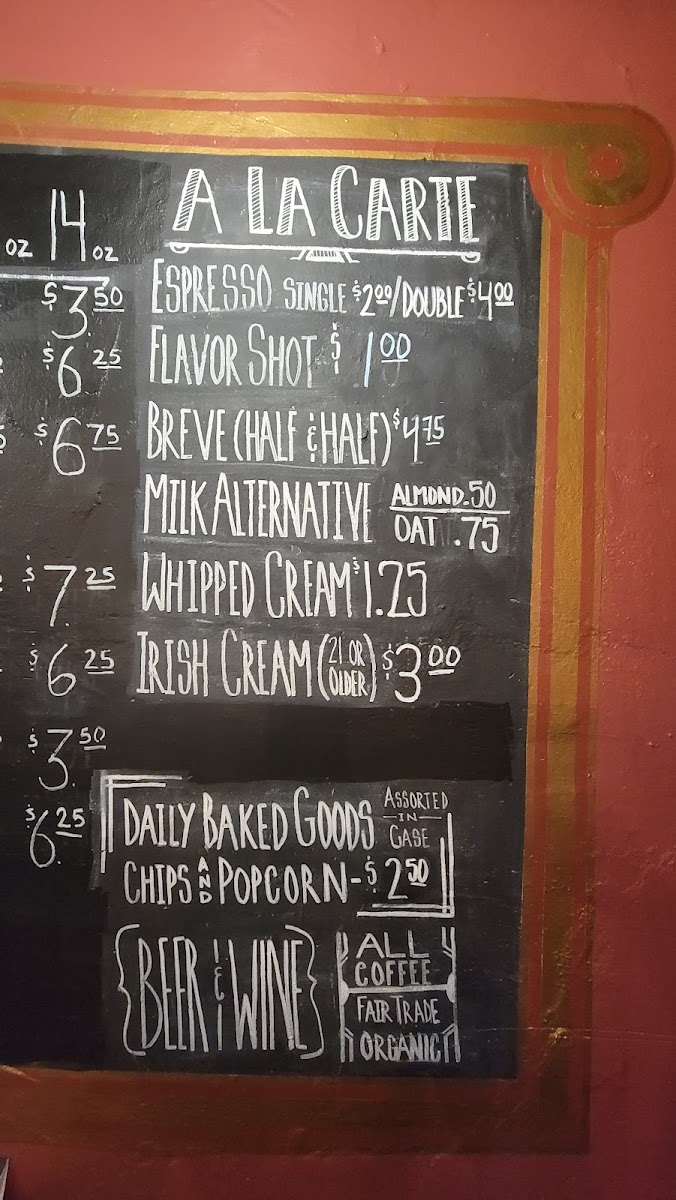 OZ 14 OZ
$3.50
$6.25
$6.75
$7.25
$6.25
$3.50
$6.25
A LA CARTE
ESPRESSO SINGLE $2.00/DOUBLE $4.00
FLAVOR SHOT $1.00
BREVE (HALF & HALF) $4.75
MILK ALTERNATIVE ALMOND .50
OAT .75
WHIPPED CREAM $1.25
IRISH CREAM (21 OR OLDER) $3.00
DAILY BAKED GOODS ASSORTED IN CASE
CHIPS AND POPCORN - $2.50
{BEER & WINE}
ALL
COFFEE
FAIR TRADE
ORGANIC